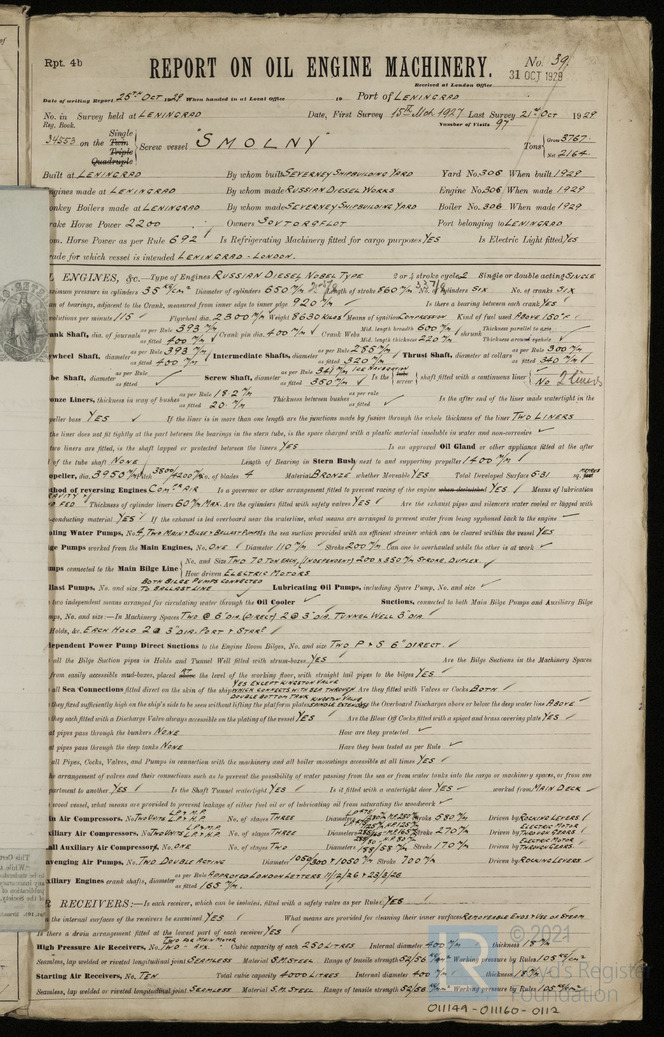 Rpt. 4b
REPORT ON OIL ENGINE MACHINERY.
No. 39
31 OCT 1929
Received at London Office
Date of writing Report 25TH OCT 1929 When handed in at Local Office 19 Port of LENINGRAD
No. in Survey held at LENINGRAD Date, First Survey 15TH Mch. 1927 Last Survey 21st Oct 1929
Reg. Book. Number of Visits 97
34553 on the Single Twin Triple Quadruple Screw vessel "SMOLNY" Tons Gross 3767 Net 2164
Built at LENINGRAD By whom built SEVERNEY SHIPBUILDING YARD Yard No. 306 When built 1929
Engines made at LENINGRAD By whom made RUSSIAN DIESEL WORKS Engine No. 306 When made 1929
onkey Boilers made at LENINGRAD By whom made SEVERNEY SHIPBUILDING YARD Boiler No. 306 When made 1929
rake Horse Power 2200 Owners SOVTORGFLOT Port belonging to LENINGRAD
om. Horse Power as per Rule 692 Is Refrigerating Machinery fitted for cargo purposes YES Is Electric Light fitted YES
rade for which vessel is intended LENINGRAD - LONDON.
L ENGINES, &c. Type of Engines RUSSIAN DIESEL NOBEL TYPE 2 or 4 stroke cycle 2 Single or double acting SINGLE
aximum pressure in cylinders 35 Diameter of cylinders 650 m/m Length of stroke 860 m/m No. of cylinders SIX No. of cranks SIX
an of bearings, adjacent to the Crank, measured from inner edge to inner edge 920 m/m Is there a bearing between each crank YES
evolutions per minute 115 Flywheel dia. 2300 m/m Weight 8630 KILOS Means of ignition COMPRESSION Kind of fuel used ABOVE 150°F
ank Shaft, dia. of journals as per Rule 393 m/m as fitted 400 m/m Crank pin dia. 400 m/m Crank Webs Mid. length breadth 600 m/m Mid. length thickness 220 m/m shrunk Thickness parallel to axis Thickness around eyehole
ywheel Shaft, diameter as per Rule 393 m/m as fitted 400 m/m Intermediate Shafts, diameter as per Rule 285 m/m as fitted 320 m/m Thrust Shaft, diameter at collars as per Rule 300 m/m as fitted 340 m/m
be Shaft, diameter as per Rule as fitted Screw Shaft, diameter as per Rule 341 m/m ICE NAVIGATION as fitted 350 m/m Is the screw shaft fitted with a continuous liner No 2 liners
onze Liners, thickness in way of bushes as per Rule 18.2 m/m as fitted 20 m/m Thickness between bushes as per rule as fitted Is the after end of the liner made watertight in the
peller boss YES If the liner is in more than one length are the junctions made by fusion through the whole thickness of the liner TWO LINERS
the liner does not fit tightly at the part between the bearings in the stern tube, is the space charged with a plastic material insoluble in water and non-corrosive
two liners are fitted, is the shaft lapped or protected between the liners YES Is an approved Oil Gland or other appliance fitted at the after
of the tube shaft NONE Length of Bearing in Stern Bush next to and supporting propeller 1400 m/m
opeller, dia. 3950 m/m Pitch 3800/4200 m/m No. of blades 4 Material BRONZE whether Moveable YES Total Developed Surface 5.31 sq. METRES
ethod of reversing Engines COMPR AIR Is a governor or other arrangement fitted to prevent racing of the engine when declutched YES Means of lubrication
GRAVITY & FED Thickness of cylinder liners 60 m/m MAX. Are the cylinders fitted with safety valves YES Are the exhaust pipes and silencers water cooled or lagged with
conducting material YES If the exhaust is led overboard near the waterline, what means are arranged to prevent water from being syphoned back to the engine
oling Water Pumps, No. 4, TWO MAIN & BILGE & BALLAST PUMPS Is the sea suction provided with an efficient strainer which can be cleared within the vessel YES
ge Pumps worked from the Main Engines, No. ONE Diameter 110 m/m Stroke 200 m/m Can one be overhauled while the other is at work
mps connected to the Main Bilge Line No. and Size TWO 70 TON EACH, (INDEPENDENT) 200 x 350 m/m STROKE. DUPLEX.
How driven ELECTRIC MOTORS
BOTH BILGE PUMPS CONNECTED
llast Pumps, No. and size TO BALLAST LINE Lubricating Oil Pumps, including Spare Pump, No. and size
two independent means arranged for circulating water through the Oil Cooler Suctions, connected to both Main Bilge Pumps and Auxiliary Bilge
mps, No. and size :—In Machinery Spaces TWO @ 6" DIA. (DIRECT) 2 @ 3" DIA. TUNNEL WELL 3" DIA.
Holds, &c. EACH HOLD 2 @ 3" DIA. PORT & STARD
dependent Power Pump Direct Suctions to the Engine Room Bilges, No. and size TWO P & S 6" DIRECT.
all the Bilge Suction pipes in Holds and Tunnel Well fitted with strum-boxes YES Are the Bilge Suctions in the Machinery Spaces
from easily accessible mud-boxes, placed AT the level of the working floor, with straight tail pipes to the bilges YES
all Sea Connections fitted direct on the skin of the ship YES EXCEPT KINGSTON VALVE WHICH CONNECTS WITH SEA THROUGH DOUBLE BOTTOM TANK Are they fitted with Valves or Cocks BOTH
they fixed sufficiently high on the ship's side to be seen without lifting the platform plates KINGSTON VALVE SPINDLE EXTENDED Are the Overboard Discharges above or below the deep water line ABOVE
they each fitted with a Discharge Valve always accessible on the plating of the vessel YES Are the Blow Off Cocks fitted with a spigot and brass covering plate YES
at pipes pass through the bunkers NONE How are they protected
at pipes pass through the deep tanks NONE Have they been tested as per Rule
all Pipes, Cocks, Valves, and Pumps in connection with the machinery and all boiler mountings accessible at all times YES
he arrangement of valves and their connections such as to prevent the possibility of water passing from the sea or from water tanks into the cargo or machinery spaces, or from one
partment to another YES Is the Shaft Tunnel watertight YES Is it fitted with a watertight door YES worked from MAIN DECK
a wood vessel, what means are provided to prevent leakage of either fuel oil or of lubricating oil from saturating the woodwork
in Air Compressors, No. TWO UNITS No. of stages THREE Diameters Stroke 580 m/m Driven by ROCKING LEVERS
xiliary Air Compressors, No. TWO UNITS No. of stages THREE Diameters Stroke 270 m/m Driven by ELECTRIC MOTOR THROUGH GEARS
all Auxiliary Air Compressors, No. ONE No. of stages TWO Diameters 158/58 m/m Stroke 170 m/m Driven by ELECTRIC MOTOR THROUGH GEARS.
avenging Air Pumps, No. TWO DOUBLE ACTING Diameter Stroke 700 m/m Driven by ROCKING LEVERS
xiliary Engines crank shafts, diameter as per Rule APPROVED LONDON LETTERS 11/2/26 & 23/3/26
as fitted 165 m/m.
R RECEIVERS:—Is each receiver, which can be isolated, fitted with a safety valve as per Rule YES
the internal surfaces of the receivers be examined YES What means are provided for cleaning their inner surfaces REMOVABLE ENDS & USE OF STEAM.
Is there a drain arrangement fitted at the lowest part of each receiver YES
High Pressure Air Receivers, No. TWO Cubic capacity of each 250 LITRES Internal diameter 400 m/m thickness 18 m/m
Seamless, lap welded or riveted longitudinal joint SEAMLESS Material S.M. STEEL Range of tensile strength 52/56 Working pressure by Rules 105
Starting Air Receivers, No. TEN Total cubic capacity 4000 LITRES Internal diameter 400 m/m thickness 18 m/m
Seamless, lap welded or riveted longitudinal joint SEAMLESS Material S.M. STEEL Range of tensile strength 52/56 Working pressure by Rules 105
© 2021
Lloyd's Register
Foundation
011149-011160-0112